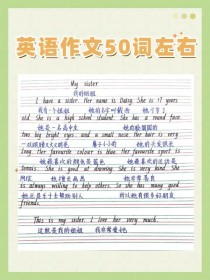 英语作文50词左右
My sister
我的姐姐
I have a sister. Her name is Daisy. She is 17 years
我有一个姐姐 她的名字叫戴西 她17岁
old. She is a high school student. She has a round face,
她是一名高中生 她的脸圆圆的
two big bright eyes and a small nose. Her hair is very
一双明亮大大的眼睛 鼻子小小的 她的头发很长
long. Her favourite colour is blue. Her favourite sport is
她最喜欢的颜色是蓝色 她最喜欢的运动是
tennis. She is good at drawing. She is very kind. She
网球 她擅长画画 她非常善良
is always willing to help others. So she has many good
她总是乐于帮助别人 所以她有很多好朋友
friends.
This is my sister. I love her very much.
这就是我的姐姐 我非常爱她